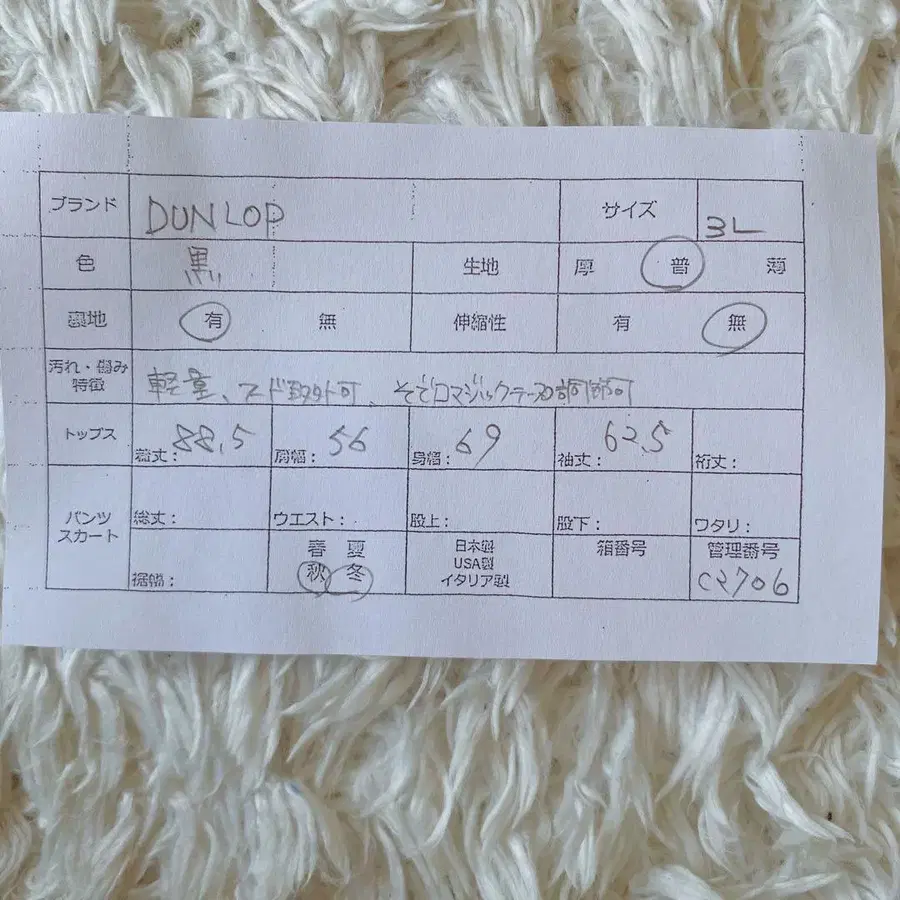 ブランド DUNLOP サイズ 3L
色 黒 生地 厚 普 薄
裏地 有 無 伸縮性 有 無
汚れ・傷み
特徴 軽量、フード取外し可、そで口マジックテープ調節可
トップス 着丈: 88.5 肩幅: 56 身幅: 69 袖丈: 62.5 裄丈:
パンツ
スカート 総丈: ウエスト: 股上: 股下: ワタリ:
裾幅: 春 夏 秋 冬 日本製 USA製 イタリア製 箱番号 管理番号 C2706